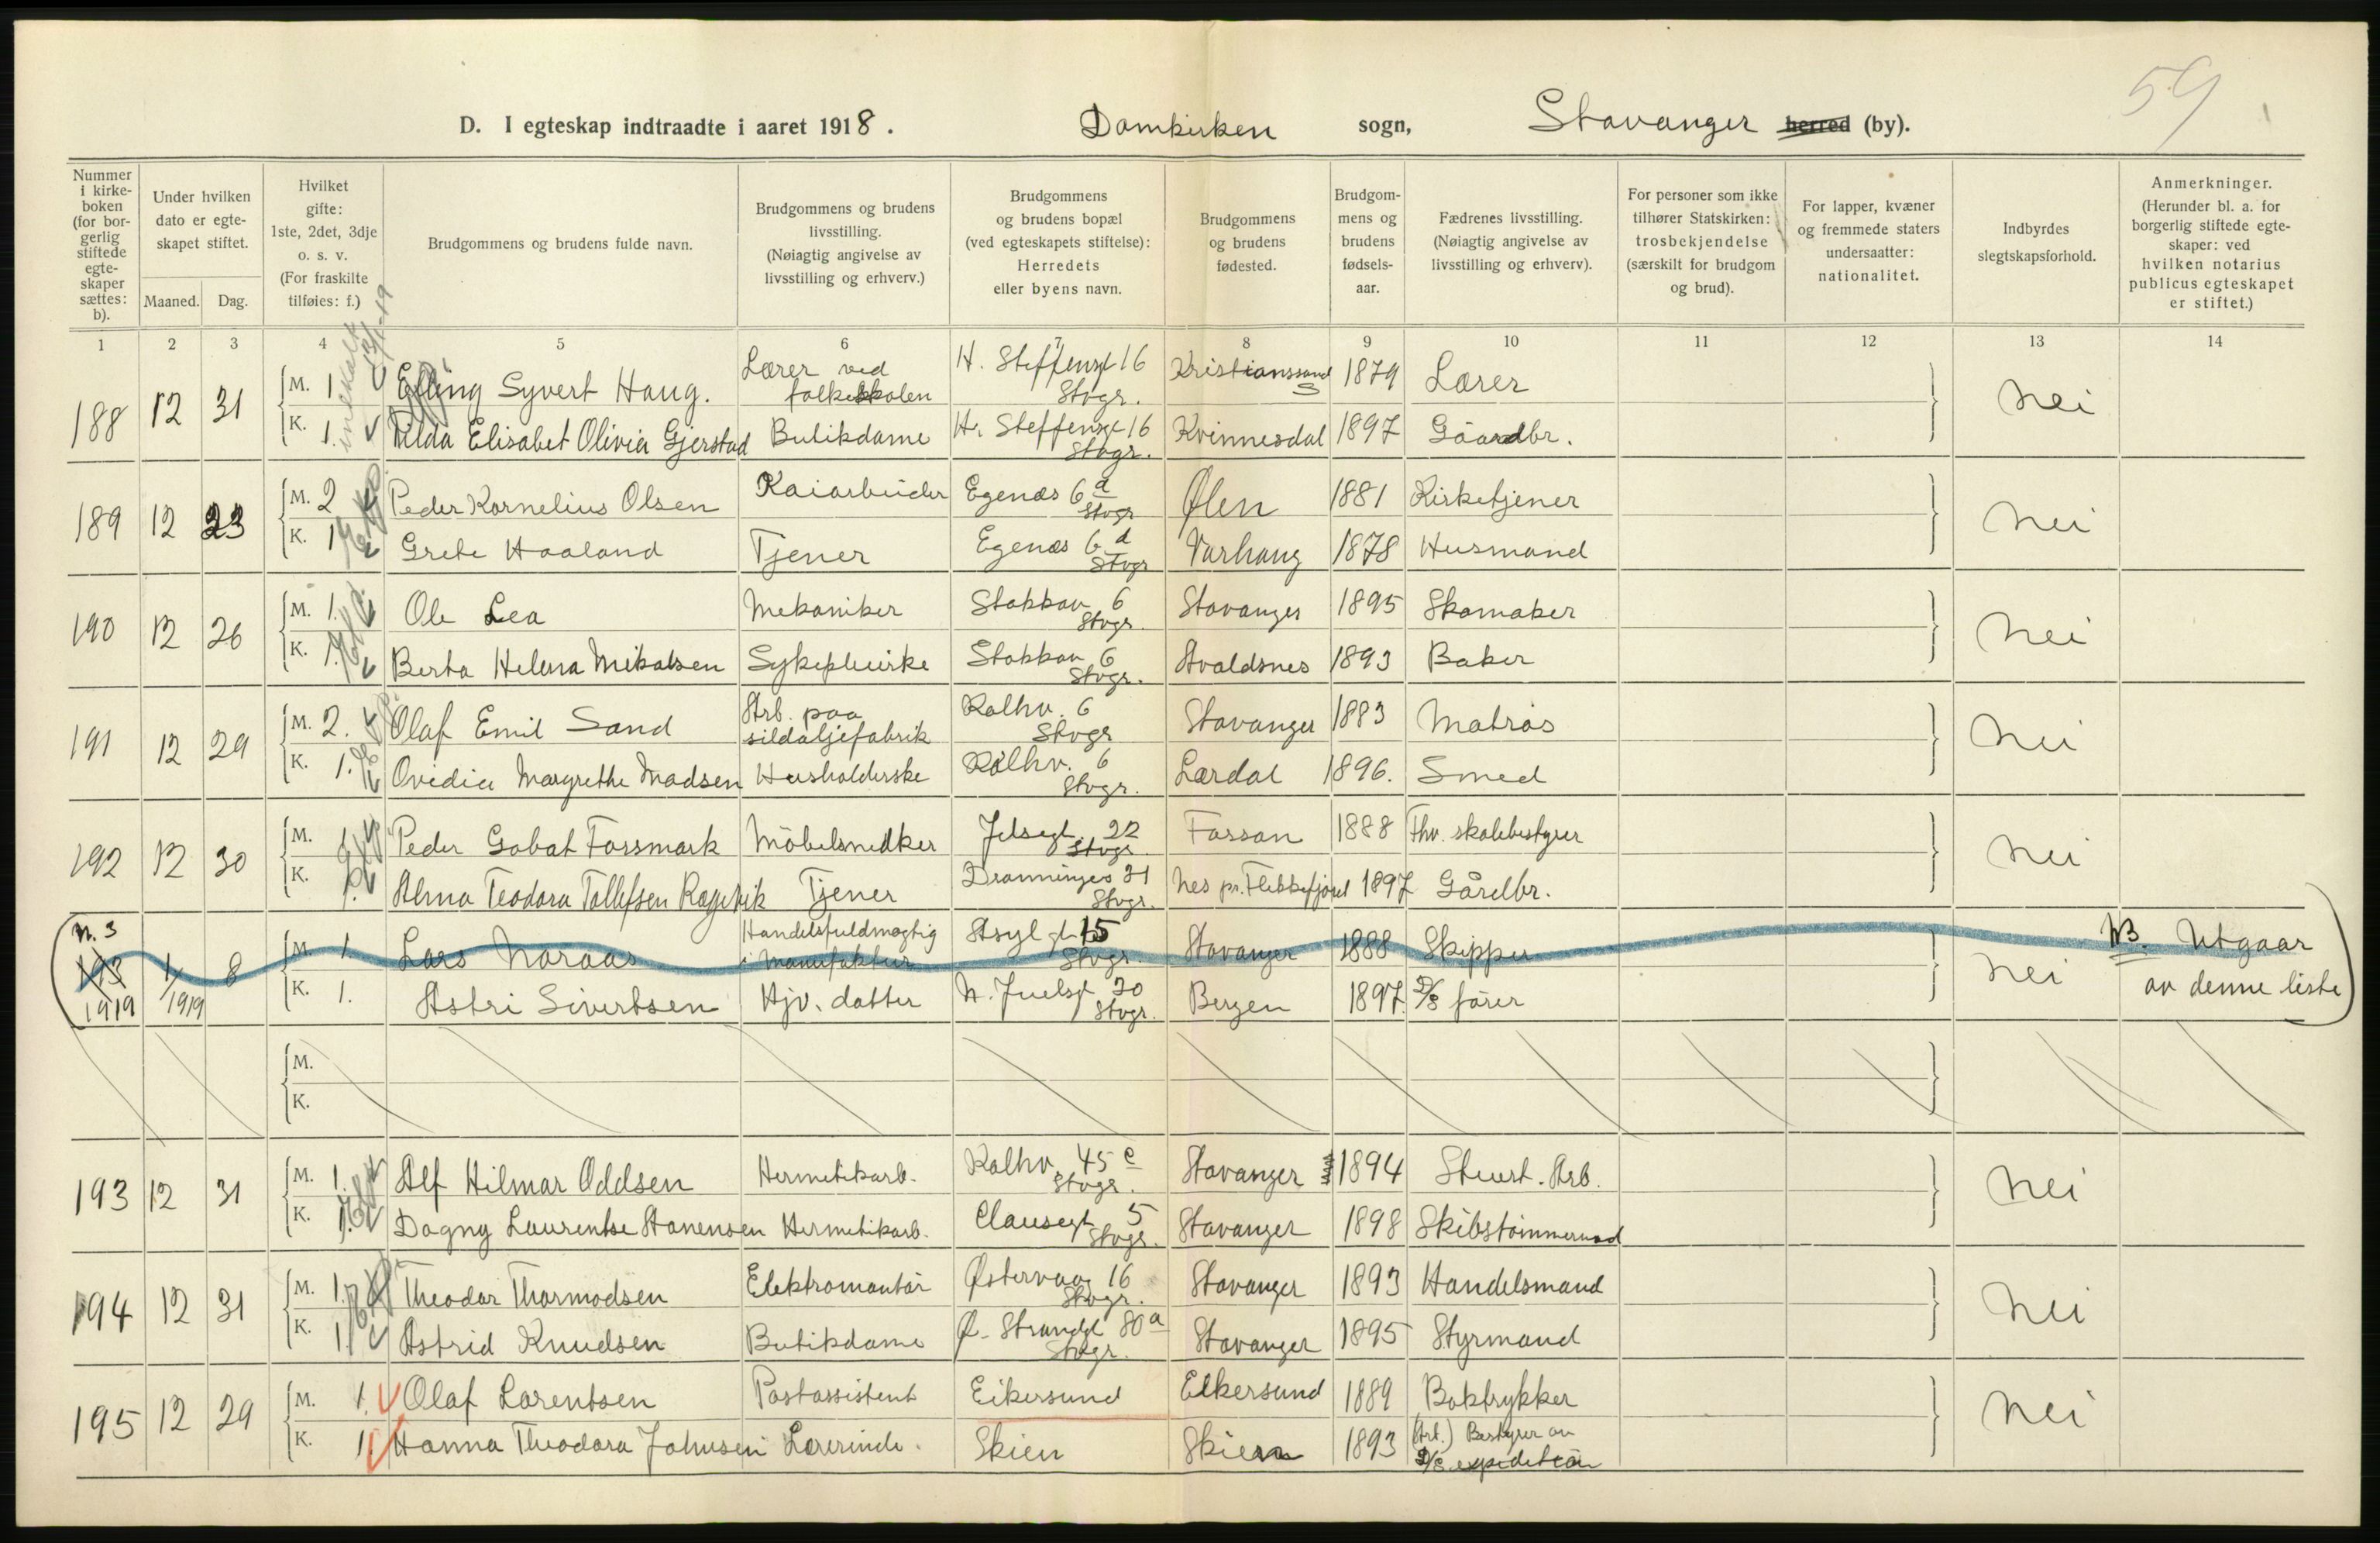 59
D. I egteskap indtraadte i aaret 1918. Domkirken sogn, Stavanger herred (by).
Nummer i kirkeboken (for borgerlig stiftede egteskaper sættes: b).
Under hvilken dato er egteskapet stiftet.
Maaned. Dag.
Hvilket gifte: 1ste, 2det, 3dje o. s. v. (For fraskilte tilføies: f.)
Brudgommens og brudens fulde navn.
Brudgommens og brudens livsstilling. (Nøiagtig angivelse av livsstilling og erhverv.)
Brudgommens og brudens bopæl (ved egteskapets stiftelse): Herredets eller byens navn.
Brudgommens og brudens fødested.
Brudgommens og brudens fødselsaar.
Fædrenes livsstilling. (Nøiagtig angivelse av livsstilling og erhverv).
For personer som ikke tilhører Statskirken: trosbekjendelse (særskilt for brudgom og brud).
For lapper, kvæner og fremmede staters undersaatter: nationalitet.
Indbyrdes slegtskapsforhold.
Anmerkninger. (Herunder bl. a. for borgerlig stiftede egteskaper: ved hvilken notarius publicus egteskapet er stiftet.)
1 2 3 4 5 6 7 8 9 10 11 12 13 14
188 12 31 M. 1. Elling Syvert Haug. Lærer ved folkeskolen H. Steffensgt 16 Stvgr. Kristianssand S 1879 Lærer nei
K. 1. Hilda Elisabet Olivia Gjerstad Butikdame H. Steffensgt 16 Stvgr. Kvinnesdal 1897 Gaardbr.
189 12 23 M. 2 Peder Kornelius Olsen Kaiarbeider Egenæs 6 a Stvgr Ølen 1881 Kirketjener nei
K. 1 Grete Haaland Tjener Egenæs 6 d Stvgr Varhaug 1878 Husmand
190 12 26 M. 1. Ole Lea Mekaniker Stokkav. 6 Stvgr. Stavanger 1895 Skomaker nei
K. 1. Berta Helena Mikalsen Sykepleirke Stokkav. 6 Stvgr. Avaldsnes 1893 Baker
191 12 29 M. 2. Olaf Emil Sand Arb. paa sildoljefabrik Kalhv. 6 Stvgr Stavanger 1883 Matros nei
K. 1. Ovidia Margrethe Madsen Husholderske Kalhv. 6 Stvgr. Lærdal 1896. Smed
192 12 30 M. 1. Peder Gabat Forsmark Möbelsnedker Jelsagt. 22 Stvgr Fossan 1888 Fhv. skolebestyrer nei
K. 1. Alma Teodora Tollefsen Rægevik Tjener Dronninges 21 Stvgr. Nes pr. Flekkefjord 1897 Gårdbr.
N. 3 193 1919 1/1919 8 M. 1. Lars Noraas Handelsfuldmægtig i Manufaktur Asylgt 15 Stvgr. Stavanger 1888 Skipper nei NB. Utgaar av denne liste
K. 1. Astri Sivertsen Hjv. datter N. Juelsgt 20 Stvgr. Bergen 1897. D/S förer
M.
K.
193 12 31 M. 1. Alf Hilmar Oddsen Hermetikarb. Kalhv. 45 c Stvgr. Stavanger 1894 Stuert. Arb. nei
K. 1. Dagny Laurentse Stanensen Hermetikarb. Clausegt 5 Stvgr. Stavanger 1898 Skibstömmermd
194 12 31 M. 1. Theodor Thormodsen Elektromontör Østervaag 16 Stvgr. Stavanger 1893 Handelsmand nei
K. 1. Astrid Knudsen Butikdame Ø. Strandgt 80 a Stvgr. Stavanger 1895 Styrmand
195 12 29 M. 1. Olaf Lorentsen Postassistent Eikersund Eikersund 1889 Boktrykker nei
K. 1. Hanna Theodora Johnsen Lærerinde. Skien Skien 1893 Bestyrer av D/S expedition